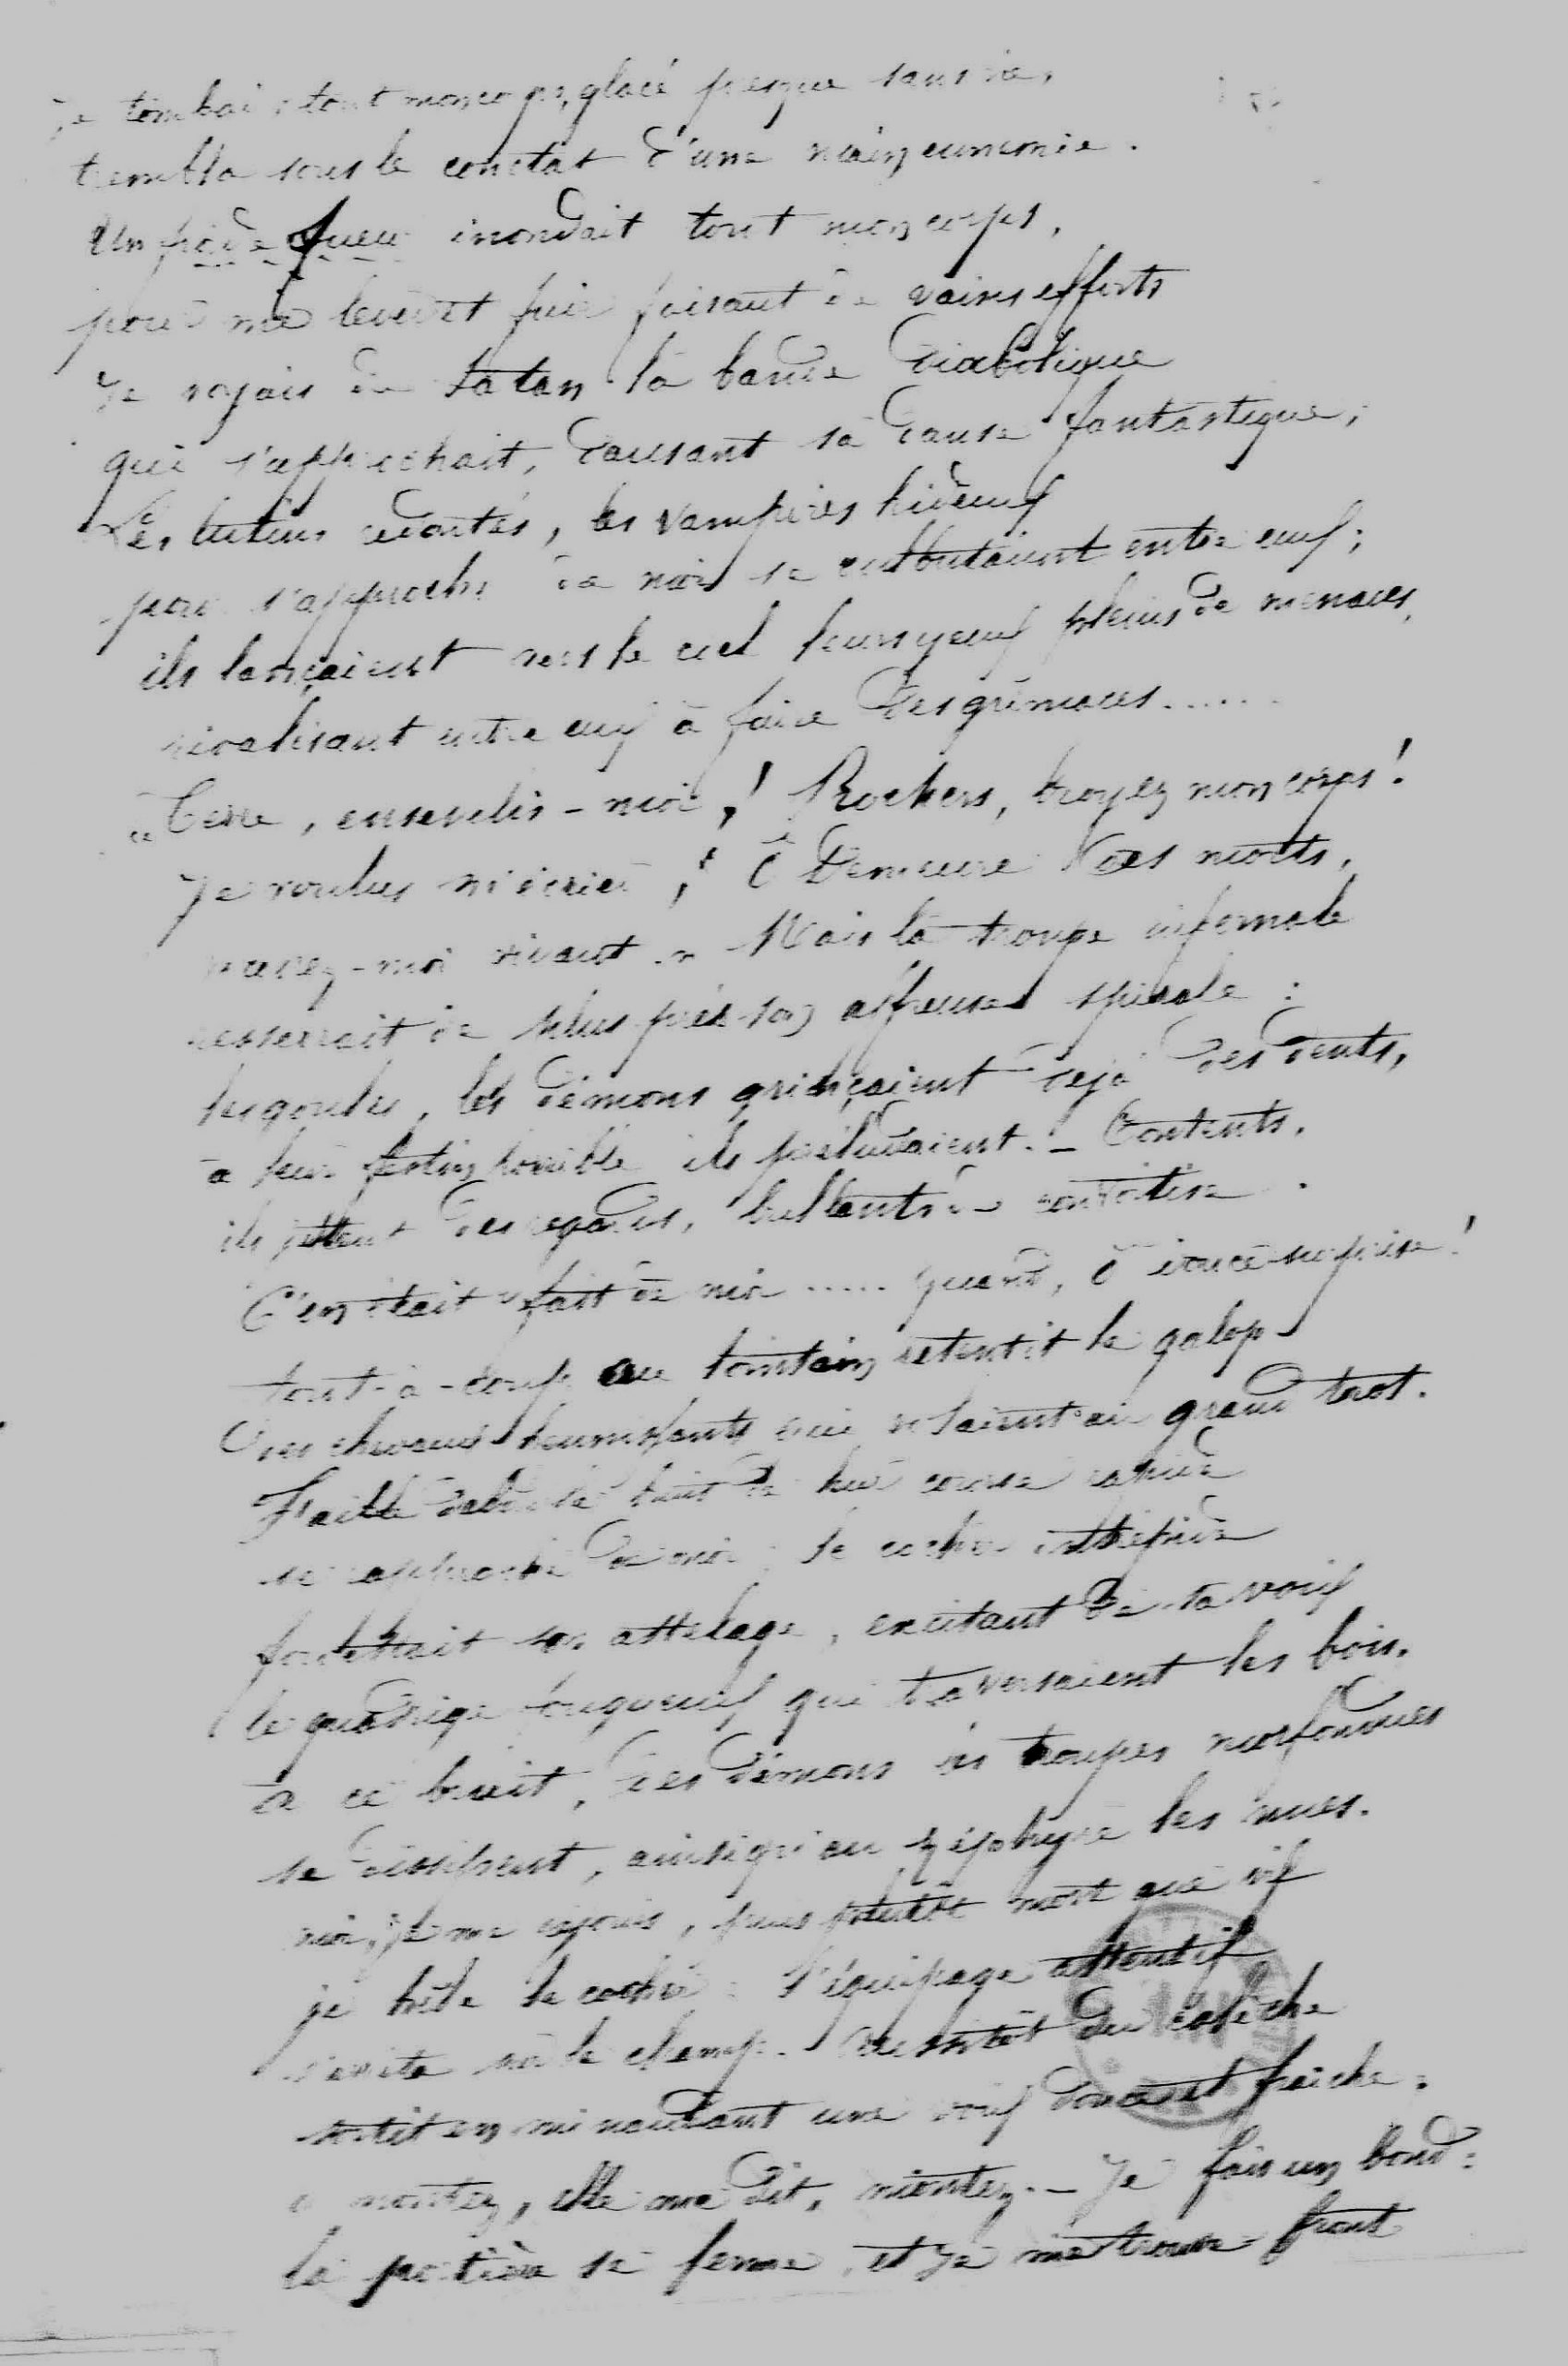 Je tombai : tout mon corps, glacé presque sans vie,
trembla sous le contat d'une main ennemie.
Un froide sueur inondait tout mon corps,
pour me lever et fuir faisant de vains efforts
Je voyais de Satan la bande diabolique
qui s'approchait, dansant sa danse fantastique;
Les lutins redoutés, les vampires hideux
pour s'approcher de moi se culbutaient entre eux;
ils lançaient vers le ciel leurs yeux pleins de menaces,
rivalisant entre eux à faire des grimaces......
"Terre, ensevelis-moi,! Rochers, broyez mon corps!
Je voulus m'écrier,! ô Demeure des morts,
murez-moi vivant." Mais la troupe infernale
resserrait de plus près son affreuse spirale :
les goules, les démons grinçaient déjà des dents,
à leur festin horrible ils préludaient. – Contents,
ils jettent des regards, brillants de convoitise.
C'en était fait de moi ..... quand, ô douce surprise!
tout-à-coup au lointain retentit le galop
Des chevaux hennissants qui volaient au grand trot.
Faible d'abord le bruit de leur course rapide
se rapproche de moi : le cocher intrépide
fouettait son attelage, excitant de sa voix
le quadrige fougueux qui traversaient les bois.
à ce bruit, des démons les troupes morfondues
se dissipent, ainsi qu'au zéphyre les nues.
moi, je me réjouis, puis plutôt mort que vif
je hèle le cocher : l'équipage attentif
s'arrête sur le champ. Aussitôt du calèche
sortit en minaudant une voix douce et fraîche :
« montez, elle me dit, montez. – Je fais un bond :
la portière se ferme, et je me trouve front